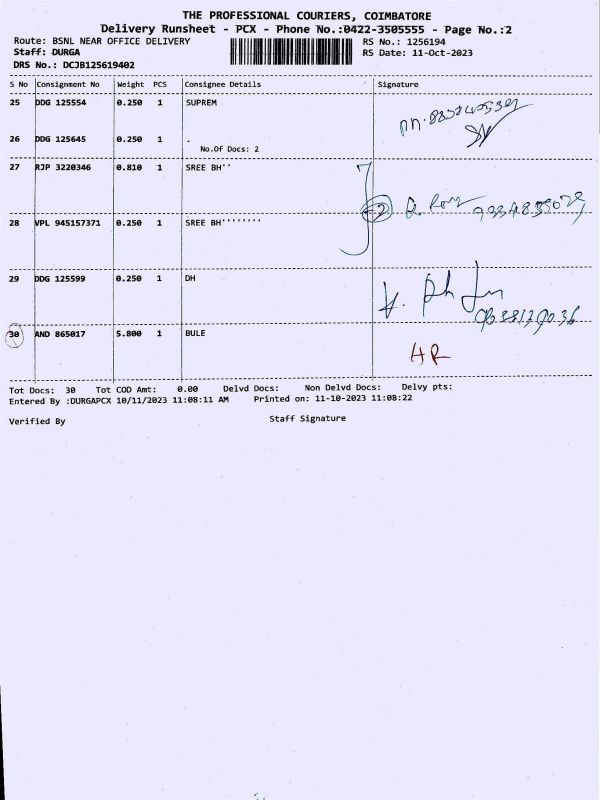 THE PROFESSIONAL COURIERS, COIMBATORE
Delivery Runsheet - PCX - Phone No.:0422-3505555 - Page No.:2
Route: BSNL NEAR OFFICE DELIVERY
Staff: DURGA
DRS No.: DCJB125619402
RS No.: 1256194
RS Date: 11-Oct-2023
S No Consignment No Weight PCS Consignee Details Signature
25 DDG 125554 0.250 1 SUPREM
26 DDG 125645 0.250 1 .
No.Of Docs: 2
27 RJP 3220346 0.810 1 SREE BH''
28 VPL 945157371 0.250 1 SREE BH'''''''
29 DDG 125599 0.250 1 DH
30 AND 865017 5.800 1 BULE
HR
Tot Docs: 30 Tot COD Amt: 0.00 Delvd Docs: Non Delvd Docs: Delvy pts:
Entered By :DURGAPCX 10/11/2023 11:08:11 AM Printed on: 11-10-2023 11:08:22
Verified By Staff Signature